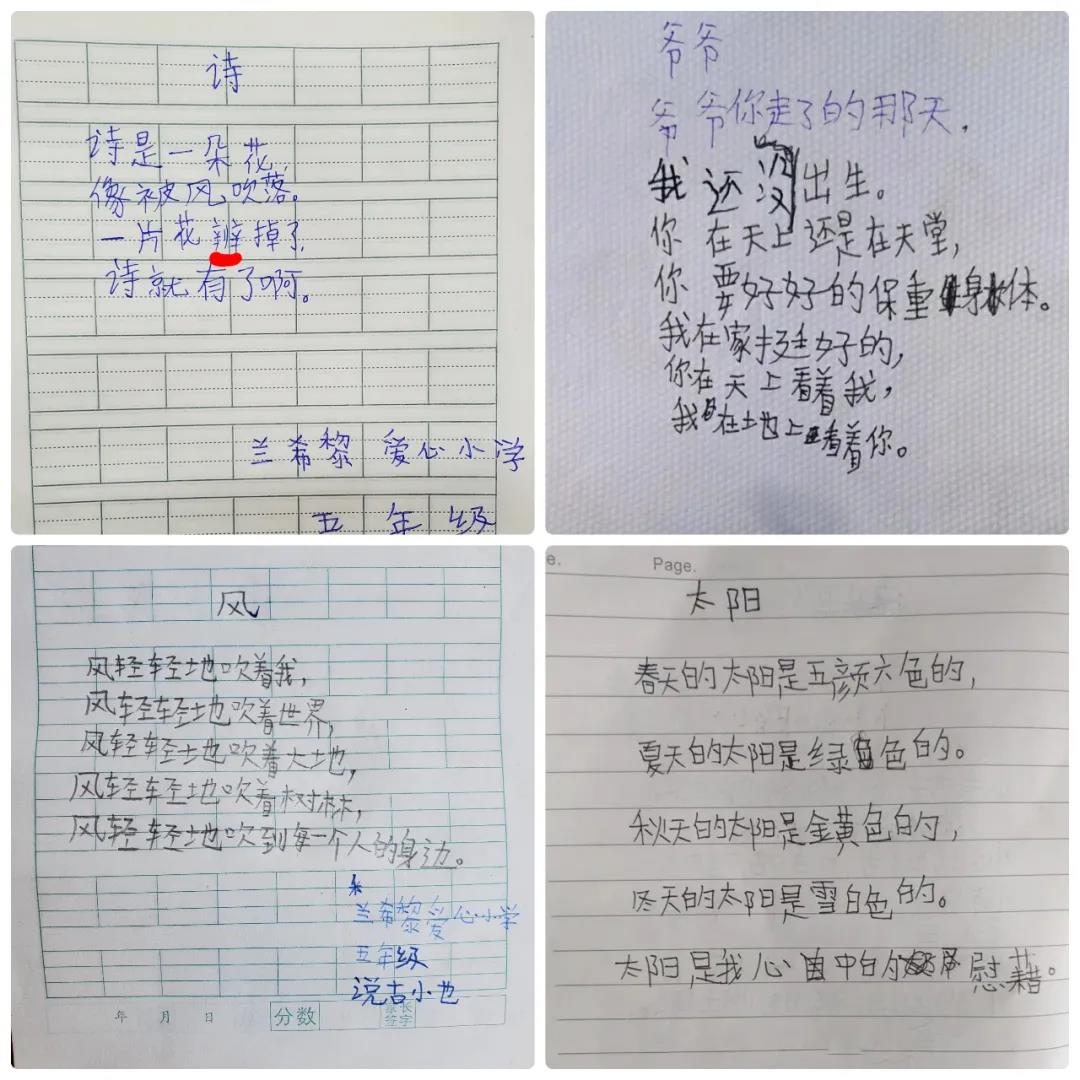 诗
诗是一朵花,
像被风吹落。
一片花辨掉了,
诗就有了啊。
兰希黎 爱心小学
五年级
爷爷
爷爷你走了的那天,
我还没出生。
你在天上还是在天堂,
你要好好的保重身体。
我在家挺好的,
你在天上看着我,
我在地上看着你。
风
风轻轻地吹着我,
风轻轻地吹着世界,
风轻轻地吹着大地,
风轻轻地吹着树林,
风轻轻地吹到每一个人的身边。
兰希黎爱心小学
五年级
说古小也
年 月 日 分数 家长签字
e. Page.
太阳
春天的太阳是五颜六色的,
夏天的太阳是绿色的。
秋天的太阳是金黄色的,
冬天的太阳是雪白色的。
太阳是我心中的慰藉。